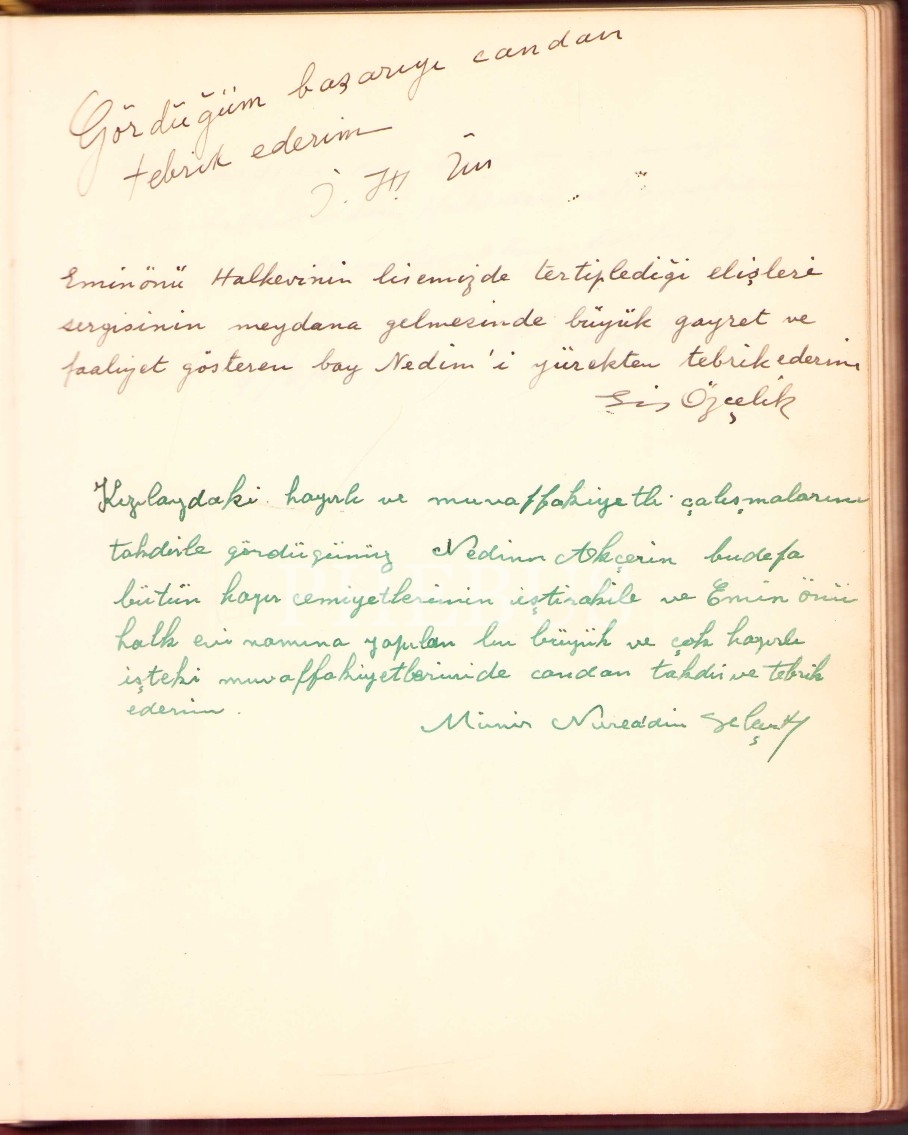 Gördüğüm başarıyı candan
tebrik ederim
İ. H. Ün
Eminönü Halkevinin lisemizde tertiplediği elişleri
sergisinin meydana gelmesinde büyük gayret ve
faaliyet gösteren bay Nedim'i yürekten tebrik ederim
Özçelik
Kızılaydaki hayırlı ve muvaffakiyetli çalışmalarını
takdirle gördüğümüz Nedim Akçerin budefa
bütün hayır cemiyetlerinin iştirakile ve Emin önü
halk evi namına yapılan bu büyük ve çok hayırlı
işteki muvaffakiyetlerinide candan takdir ve tebrik
ederim.
Münir Nureddin Selçuk
PHEBUS